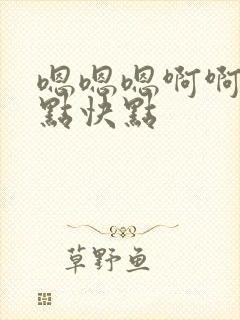 嗯嗯嗯啊啊
點快點
草野鱼